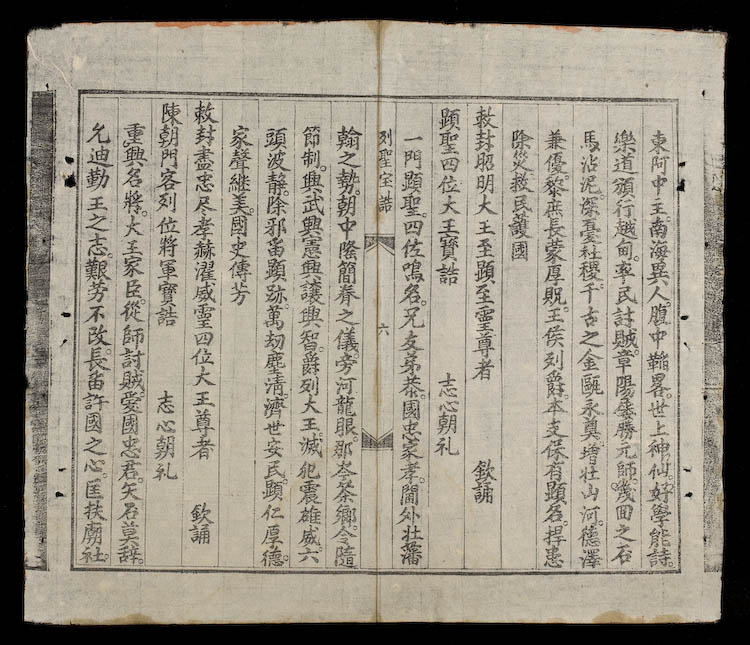 東阿中主。南海異人。腹中韜畧。世上神仙。好學能詩。
樂道頒行越甸。率民討賊。章陽奏勝元師。幾回之石
馬沾泥。深憂社稷。千古之金甌永奠。增壯山河。德澤
兼優。黎庶長蒙厚貺。王侯列爵。本支保有顕名。捍患
除災。救民護國
敕封昭明大王至顕至靈尊者 欽誦
顕聖四位大王寶誥 志心朝礼
一門顕聖。四位鳴名。兄友弟恭。國忠家孝。閫外壮藩
列聖宝誥 六
翰之勢。朝中隆簡眷之儀。旁河龍眼。郡岑茶鄉。令隨
節制。興武興憲興讓興智。爵列大王。滅犯震雄威。六
頭波靜。除邪留顕跡。萬刼塵清。濟世安民。顕仁厚德
家聲継美。國史傳芳
敕封盡忠尽孝赫濯威靈四位大王尊者 欽誦
陳朝門客列位將軍寶誥 志心朝礼
重興名將。大王家臣。從師討賊。愛國忠君。矢石莫辞。
允迪勤王之志。艱劳不改。長畱許國之心。匡扶廟社。